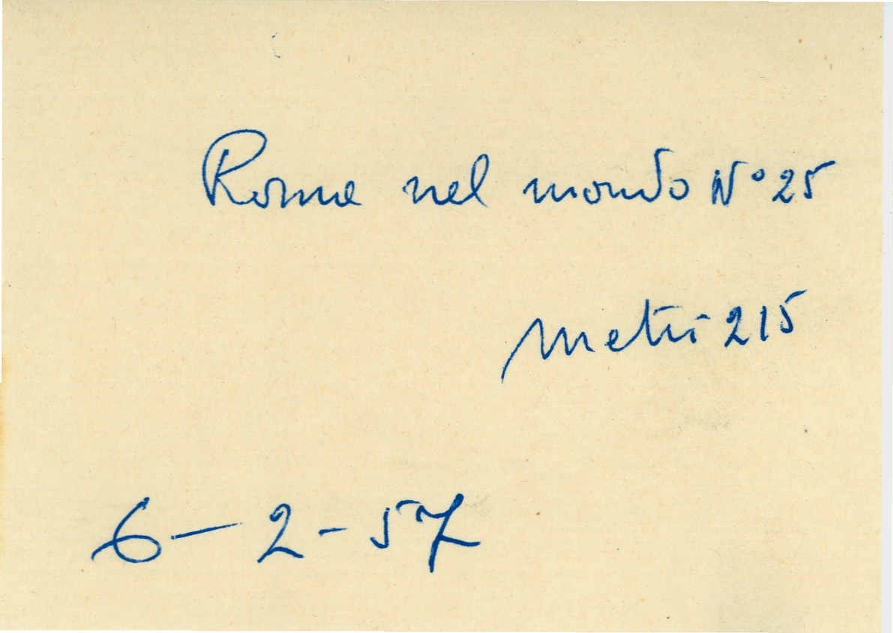 Roma nel mondo N° 25
metri 215
6 - 2 - 57